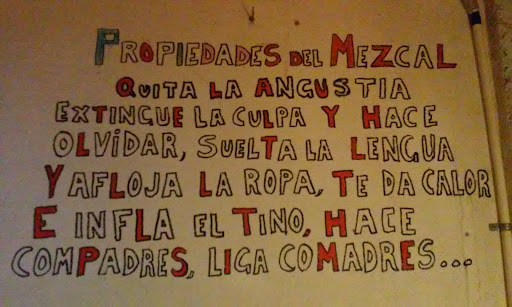 PROPIEDADES DEL MEZCAL
QUITA LA ANGUSTIA
EXTINGUE LA CULPA Y HACE
OLVIDAR, SUELTA LA LENGUA
Y AFLOJA LA ROPA, TE DA CALOR
E INFLA EL TINO, HACE
COMPADRES, LIGA COMADRES...